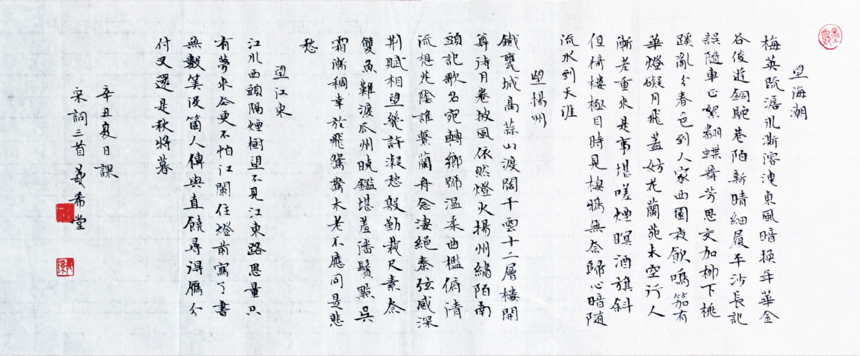 望海潮
梅英疏澹冰澌溶洩東風暗換年華金
谷俊遊銅駝巷陌新晴細履平沙長記
誤隨車正絮翻蝶舞芳思交加柳下桃
蹊亂分春色到人家西園夜飲鳴笳有
華燈礙月飛蓋妨花蘭苑未空行人
漸老重來是事堪嗟煙暝酒旗斜
但倚樓極目時見棲鴉無奈歸心暗隨
流水到天涯
望揚州
鐵甕城高蒜山渡闊干雲十二層樓開
尊待月卷披風依然燈火揚州綺陌南
頭記歌名宛轉鄉號溫柔曲檻俯清
流想花陰誰繫蘭舟念淒絕秦弦感深
荊賦相望幾許凝愁殷勤裁尺素奈
雙魚難渡瓜州曉鑑堪羞潘鬢點吳
霜漸稠幸於飛鴛鴦未老不應同是悲
愁
望江東
江水西頭隔煙樹望不見江東路思量只
有夢來去更不怕江闌住燈前寫了書
無數算沒箇人傳與直饒尋得雁分
付又還是秋將暮
辛丑夏日課
宋詞三首 希堂